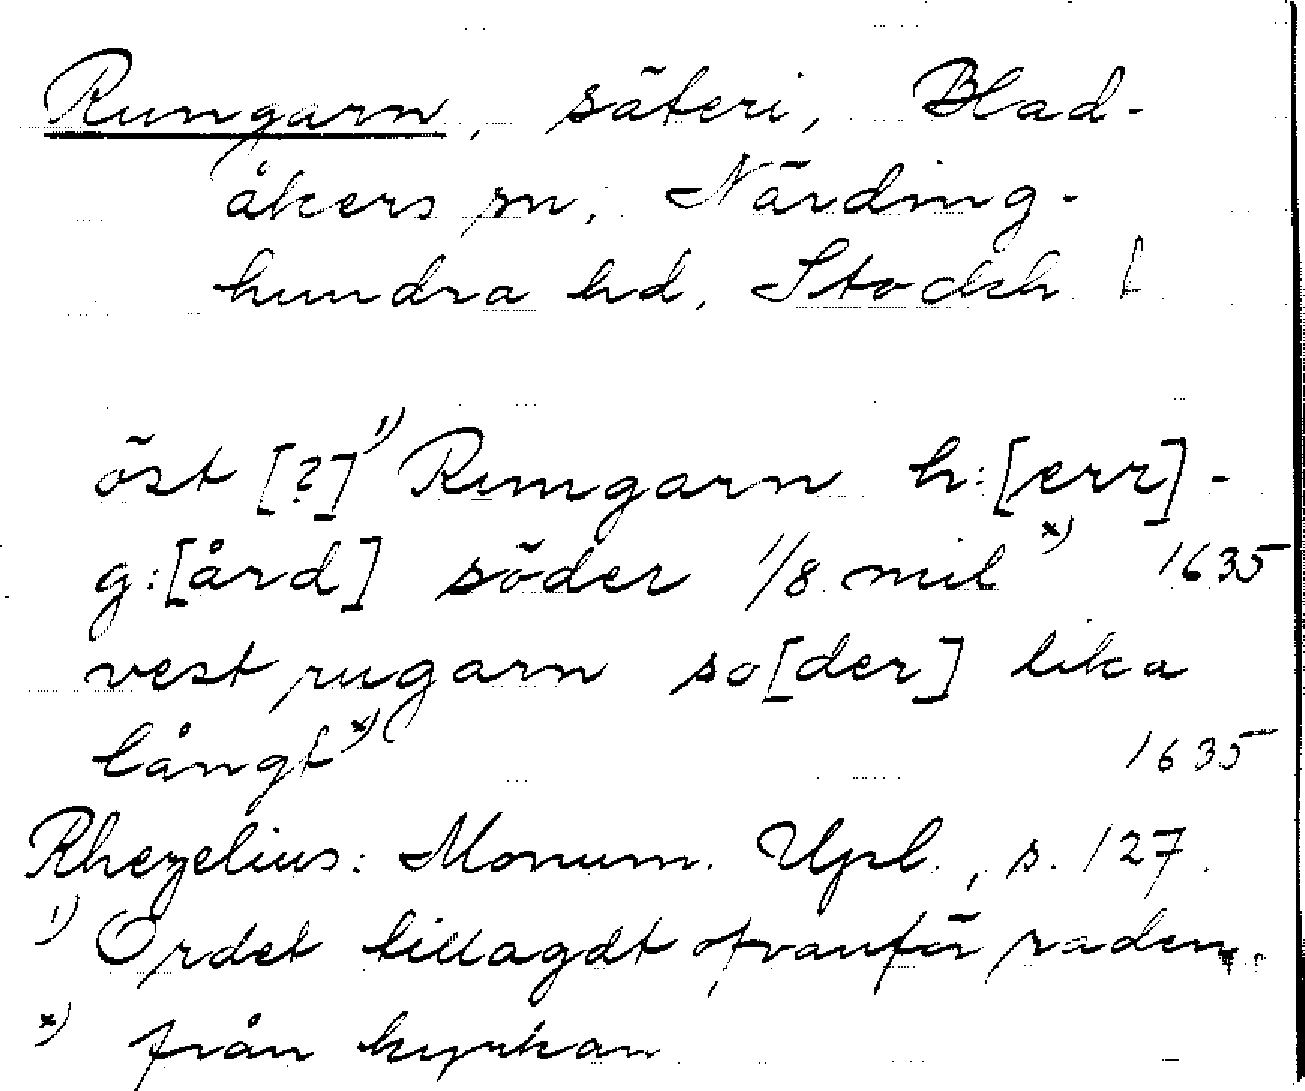 Rumgarn, säteri, Blad-
åkers sn, Närding-
hundra hd, Stockh l
öst [?]¹⁾ Rumgarn h:[err]-
g:[ård] söder 1/8 mil ˣ⁾ 1635
vest rugarn sö[der] lika
långt ˣ⁾ 1635
Rhezelius: Monum. Upl., s. 127.
¹⁾ Ordet tillagdt ofvanför raden.
ˣ⁾ från kyrkan